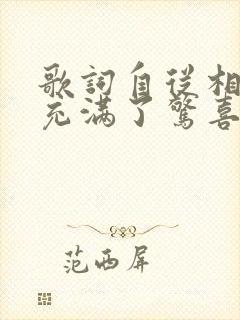 歌詞自从相
充满了驚喜
范西屏